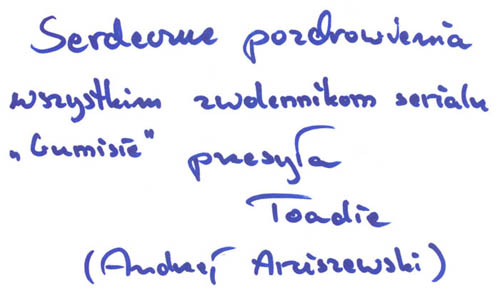 Serdeczne pozdrowienia
wszystkim zwolennikom serialu
„Gumisie”
przesyła
Toadie
(Andrzej Arciszewski)